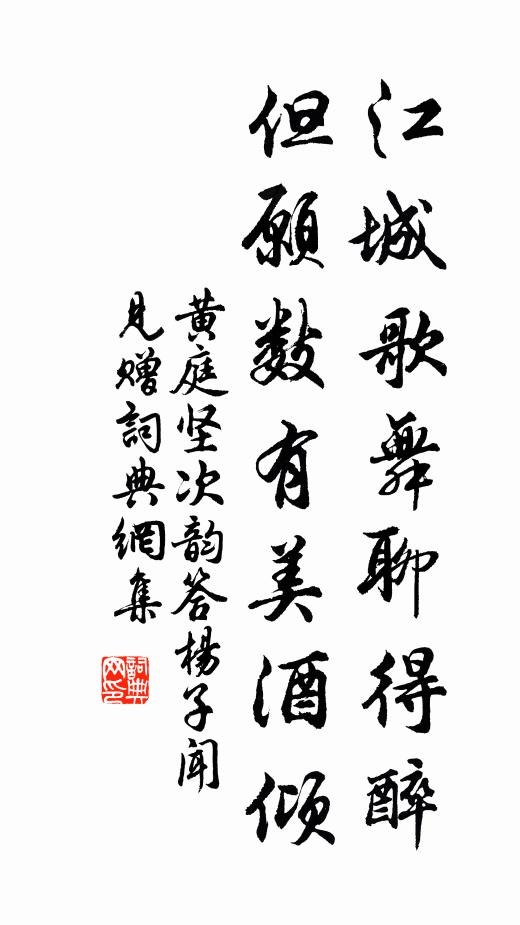 江城歌舞聊得醉
但願數有美酒傾
黄庭坚次韵答楊子聞
見贈詞典網集
詞典網印